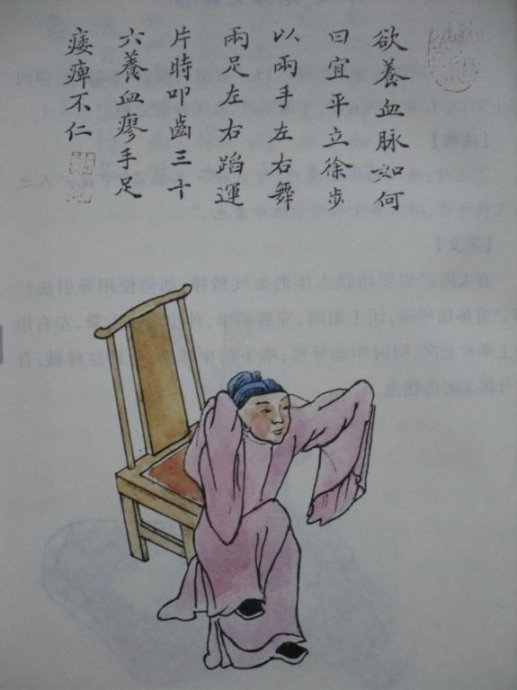 欲養血脉如何
曰宜平立徐步
以兩手左右舞
兩足左右蹈運
片時叩齒三十
六養血廖手足
痿痺不仁